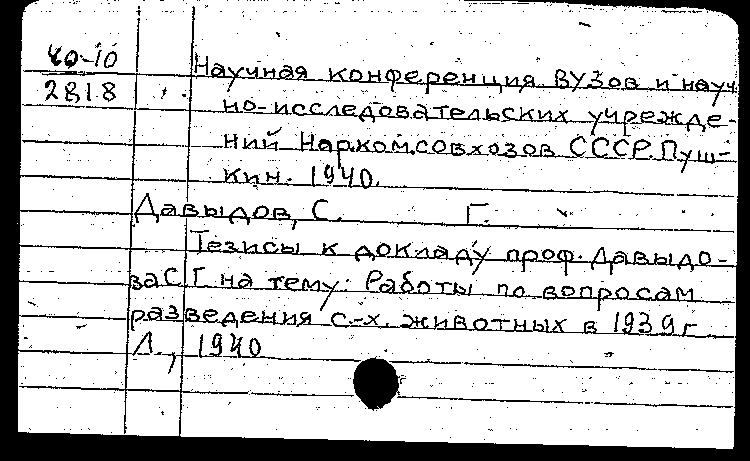 40-10
2818
Научная конференция ВУЗов и науч
но-исследовательских учрежде-
ний Наркомсовхозов СССР. Пуш-
кин. 1940.
Давыдов, С. Г.
Тезисы к докладу проф. Давыдо-
ва С Г. на тему: Работы по вопросам
разведения с.-х. животных в 1939 г
Л., 1940